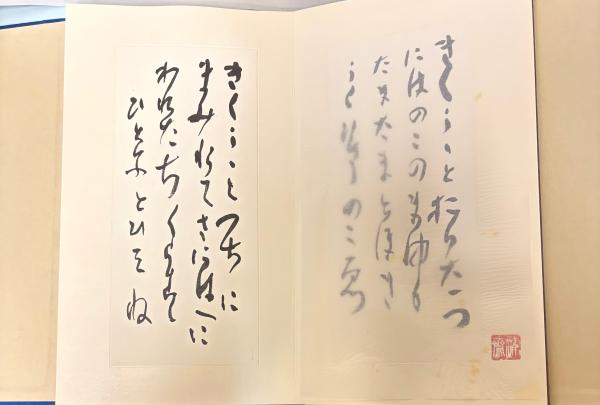 きくうゝとおりたつ
にはのこのまゆも
たまたまとほき
うぐひすのこゑ
きくうゝとつちに
まみれてさにはへに
われたちくらす
ひとなとひそね